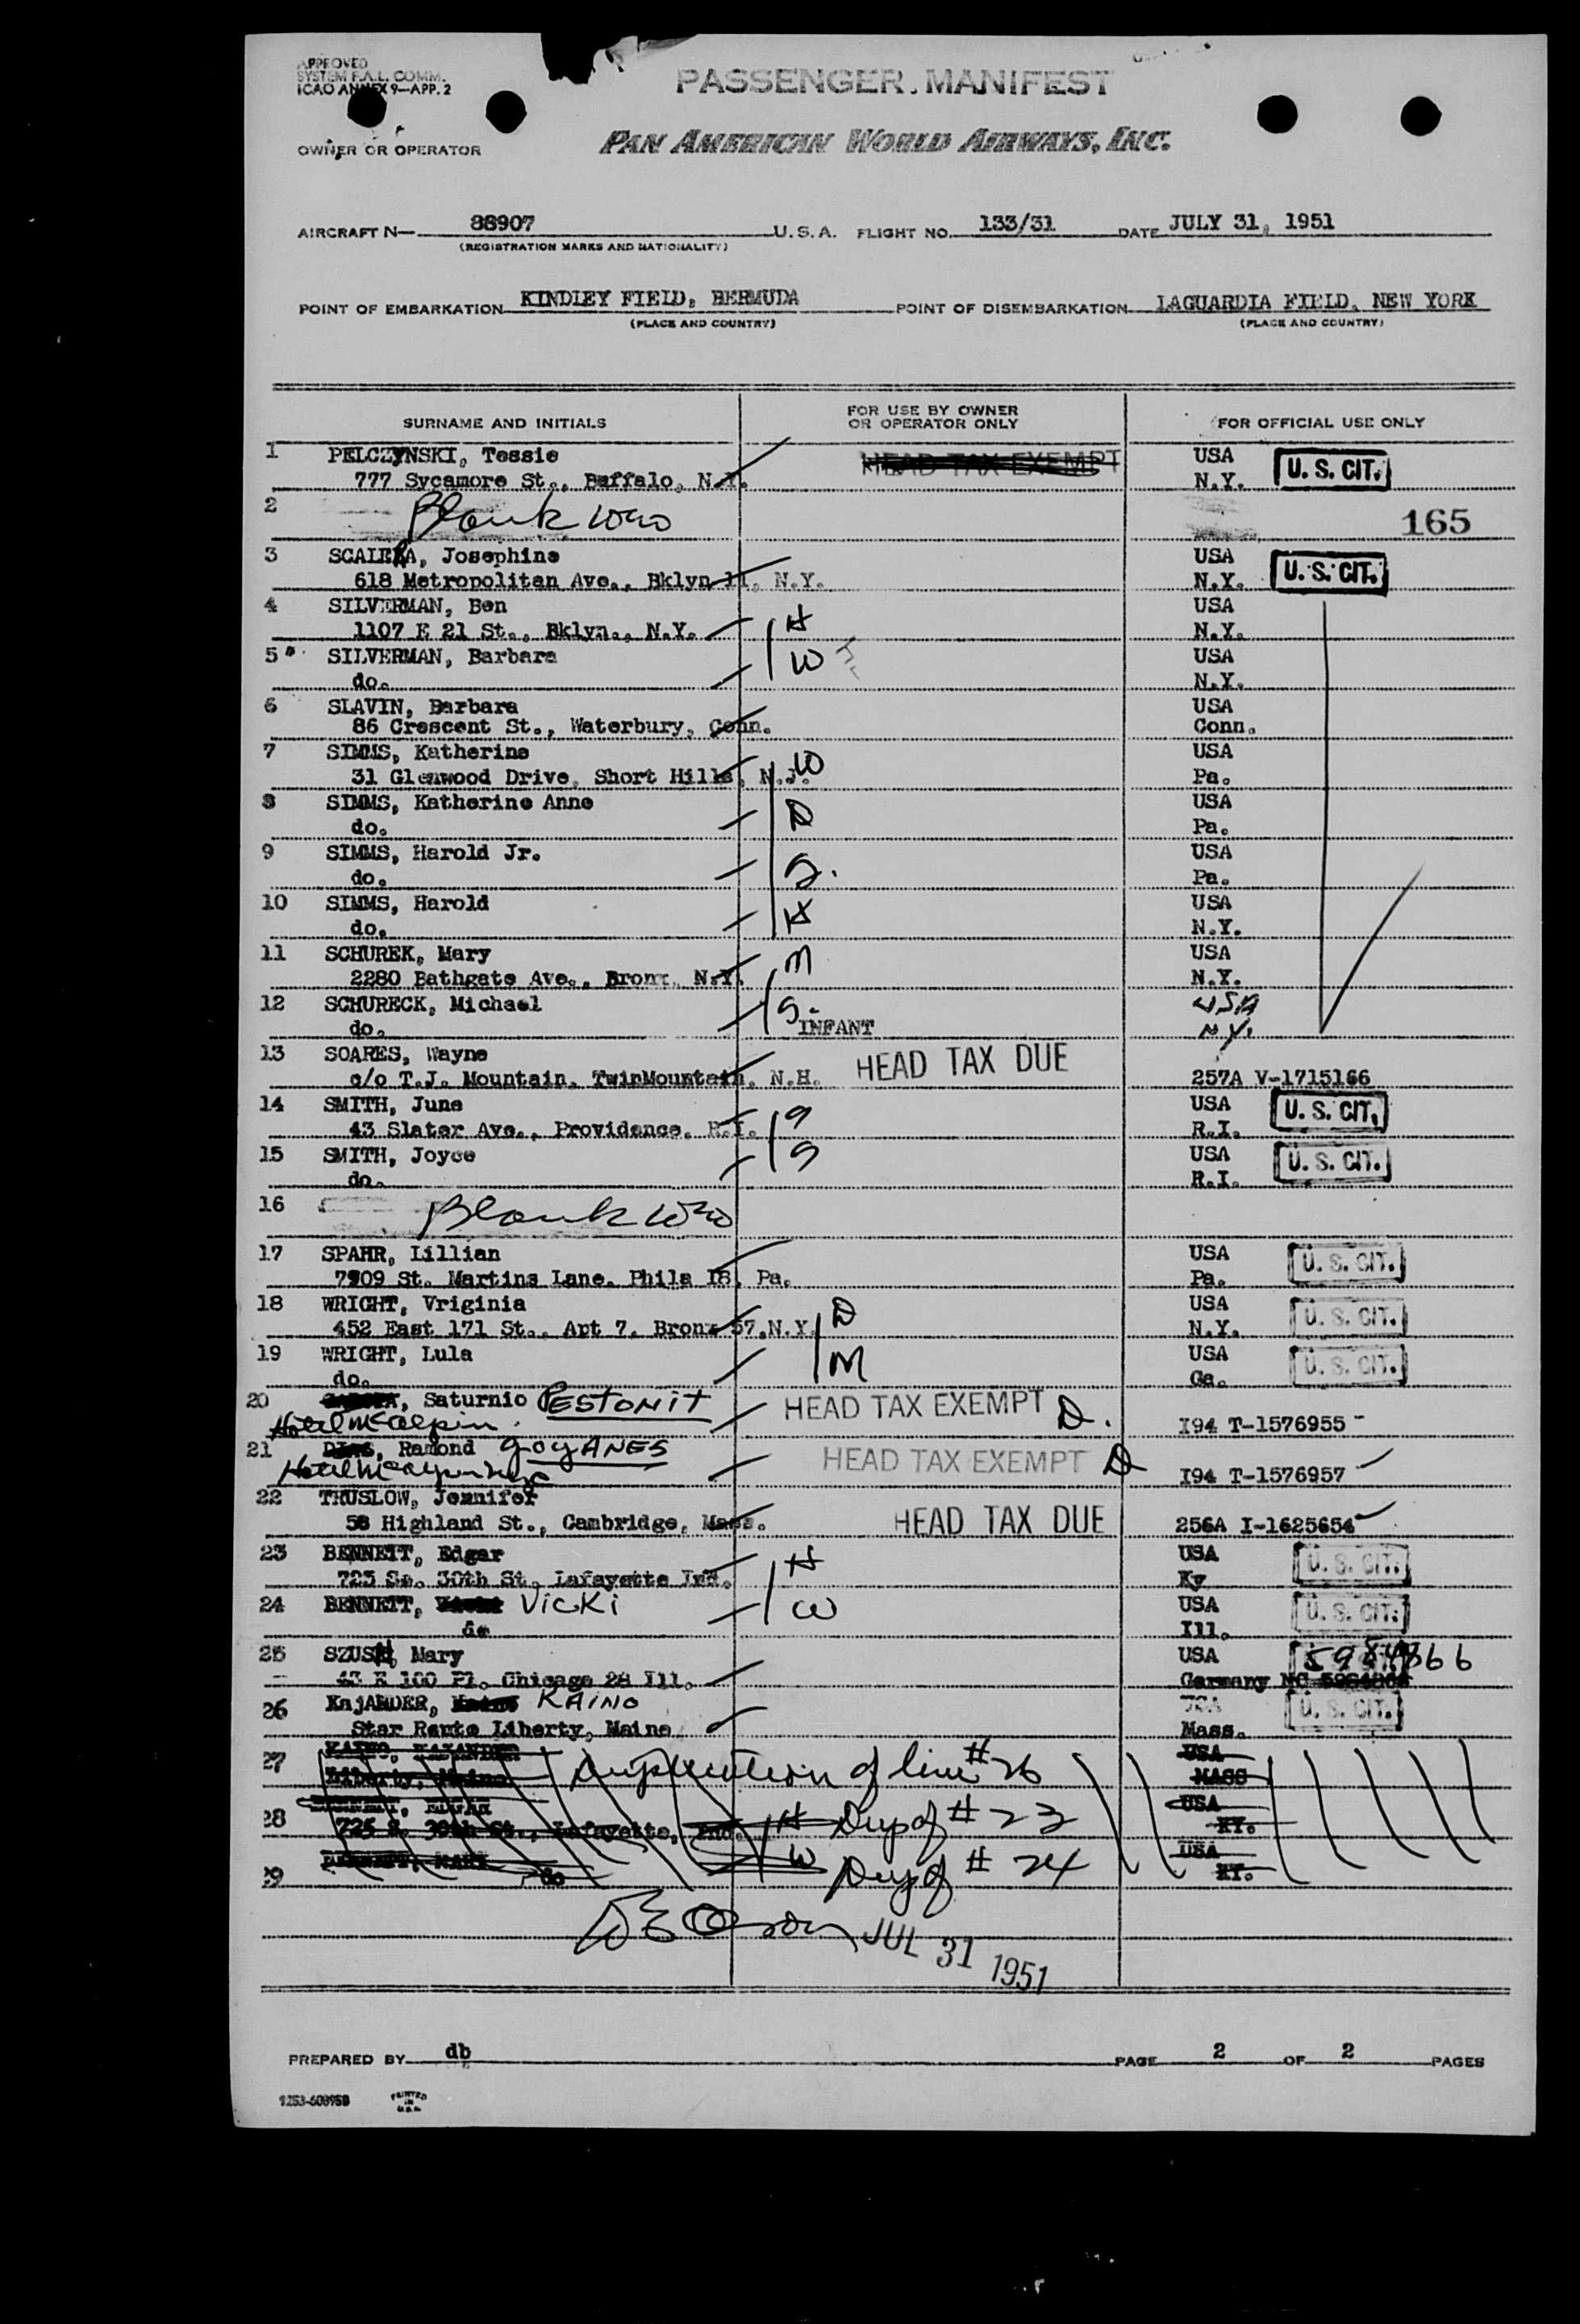 APPROVED
SYSTEM F.A.L. COMM.
ICAO ANNEX 9—APP. 2
PASSENGER MANIFEST
OWNER OR OPERATOR
PAN AMERICAN WORLD AIRWAYS, INC.
AIRCRAFT N— 88907 U.S.A. FLIGHT NO. 133/31 DATE JULY 31, 1951
(REGISTRATION MARKS AND NATIONALITY)
POINT OF EMBARKATION KINDLEY FIELD, BERMUDA POINT OF DISEMBARKATION LAGUARDIA FIELD, NEW YORK
(PLACE AND COUNTRY) (PLACE AND COUNTRY)
SURNAME AND INITIALS FOR USE BY OWNER OR OPERATOR ONLY FOR OFFICIAL USE ONLY
1 PELCZYNSKI, Tessie HEAD TAX EXEMPT USA U. S. CIT.
777 Sycamore St., Buffalo, N.Y. N.Y.
2 Blank 165
3 SCALERA, Josephine USA U. S. CIT.
618 Metropolitan Ave., Bklyn 11, N.Y. N.Y.
4 SILVERMAN, Ben H USA
1107 E 21 St., Bklyn., N.Y. N.Y.
5 SILVERMAN, Barbara W USA
do. N.Y.
6 SLAVIN, Barbara USA
86 Crescent St., Waterbury, Conn. Conn.
7 SIMMS, Katherine W USA
31 Glenwood Drive, Short Hills, N.J. Pa.
8 SIMMS, Katherine Anne D USA
do. Pa.
9 SIMMS, Harold Jr. S. USA
do. Pa.
10 SIMMS, Harold H USA
do. N.Y.
11 SCHUREK, Mary M USA
2280 Bathgate Ave., Bronx, N.Y. N.Y.
12 SCHURECK, Michael S. USA
do. INFANT N.Y.
13 SOARES, Wayne HEAD TAX DUE
c/o T.J. Mountain, TwinMountain, N.H. 257A V-1715166
14 SMITH, June S USA U. S. CIT.
43 Slater Ave., Providence, R.I. R.I.
15 SMITH, Joyce S USA U. S. CIT.
do. R.I.
16 Blank
17 SPAHR, Lillian USA U. S. CIT.
7909 St. Martins Lane, Phila 18, Pa. Pa.
18 WRIGHT, Vriginia D USA U. S. CIT.
452 East 171 St., Apt 7, Bronx 57, N.Y. N.Y.
19 WRIGHT, Lula M USA U. S. CIT.
do. Ga.
20 Saturnio PESTONIT HEAD TAX EXEMPT D.
Hotel McAlpin I94 T-1576955
21 Ramond GOYANES HEAD TAX EXEMPT D
Hotel McAlpin I94 T-1576957
22 TRUSLOW, Jennifer
58 Highland St., Cambridge, Mass. HEAD TAX DUE 256A I-1625654
23 BENNETT, Edgar H USA U. S. CIT.
725 So. 30th St. Lafayette Ind. Ky
24 BENNETT, Vicki W USA U. S. CIT.
do Ill.
25 Mary USA 5984866
43 E 100 Pl. Chicago 28 Ill. Germany NC
26 KajANDER, KAINO USA U. S. CIT.
Star Route Liberty, Maine Mass.
27 USA
Liberty, Maine Duplication of line #26 MASS
28 H Dup of # 23 USA
725 S. 30th St., Lafayette, Ind. KY.
29 W Dup of # 24 USA
do KY.
JUL 31 1951
PREPARED BY db PAGE 2 OF 2 PAGES
PRINTED IN U.S.A.